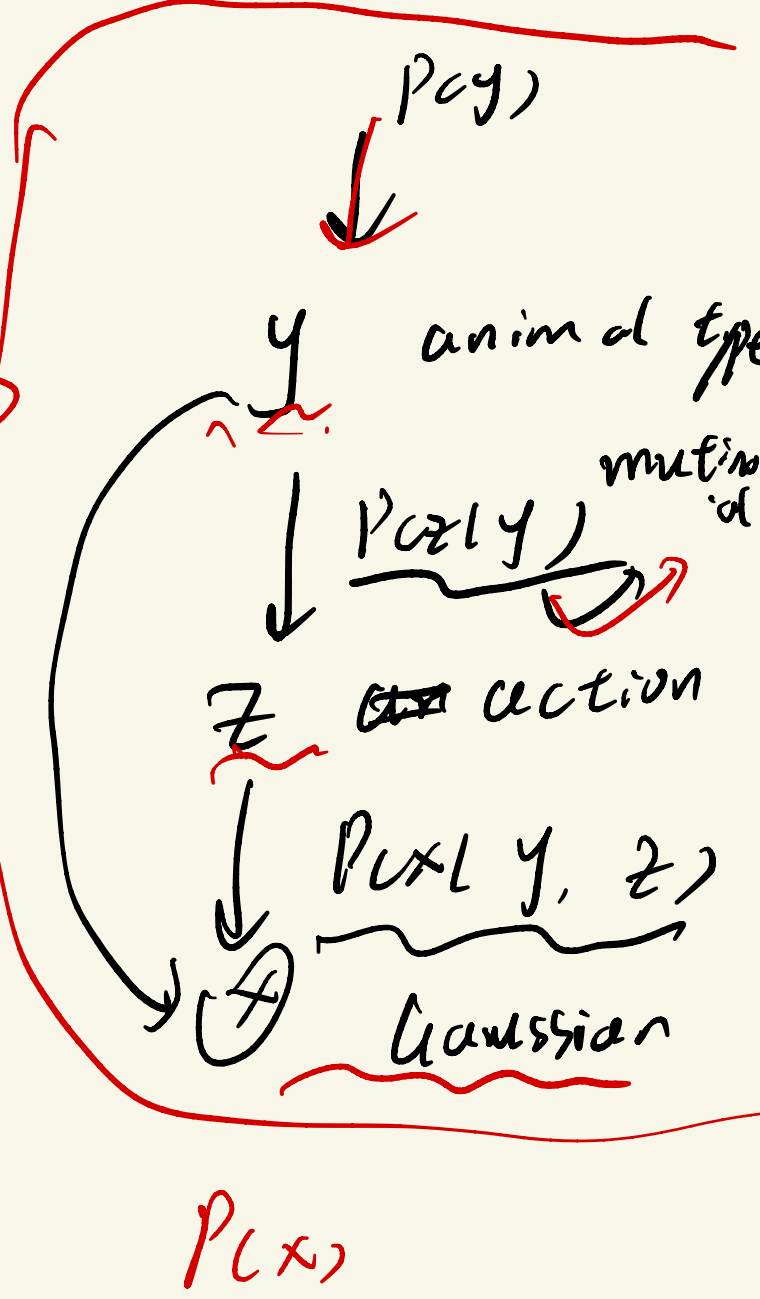 P(y)
y animal type
P(z|y)
z action
P(x|y, z)
x
Gaussian
P(x)